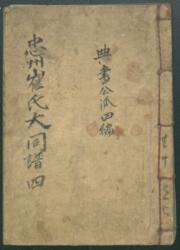 典書公派四編
忠州崔氏大同譜 四